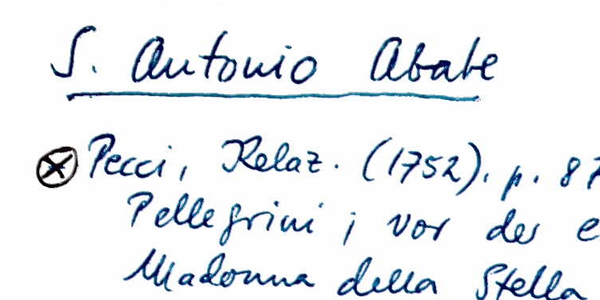 S. Antonio Abate
Pecci, Relaz. (1752). p. 87
Pellegrini; vor der e
Madonna della Stella